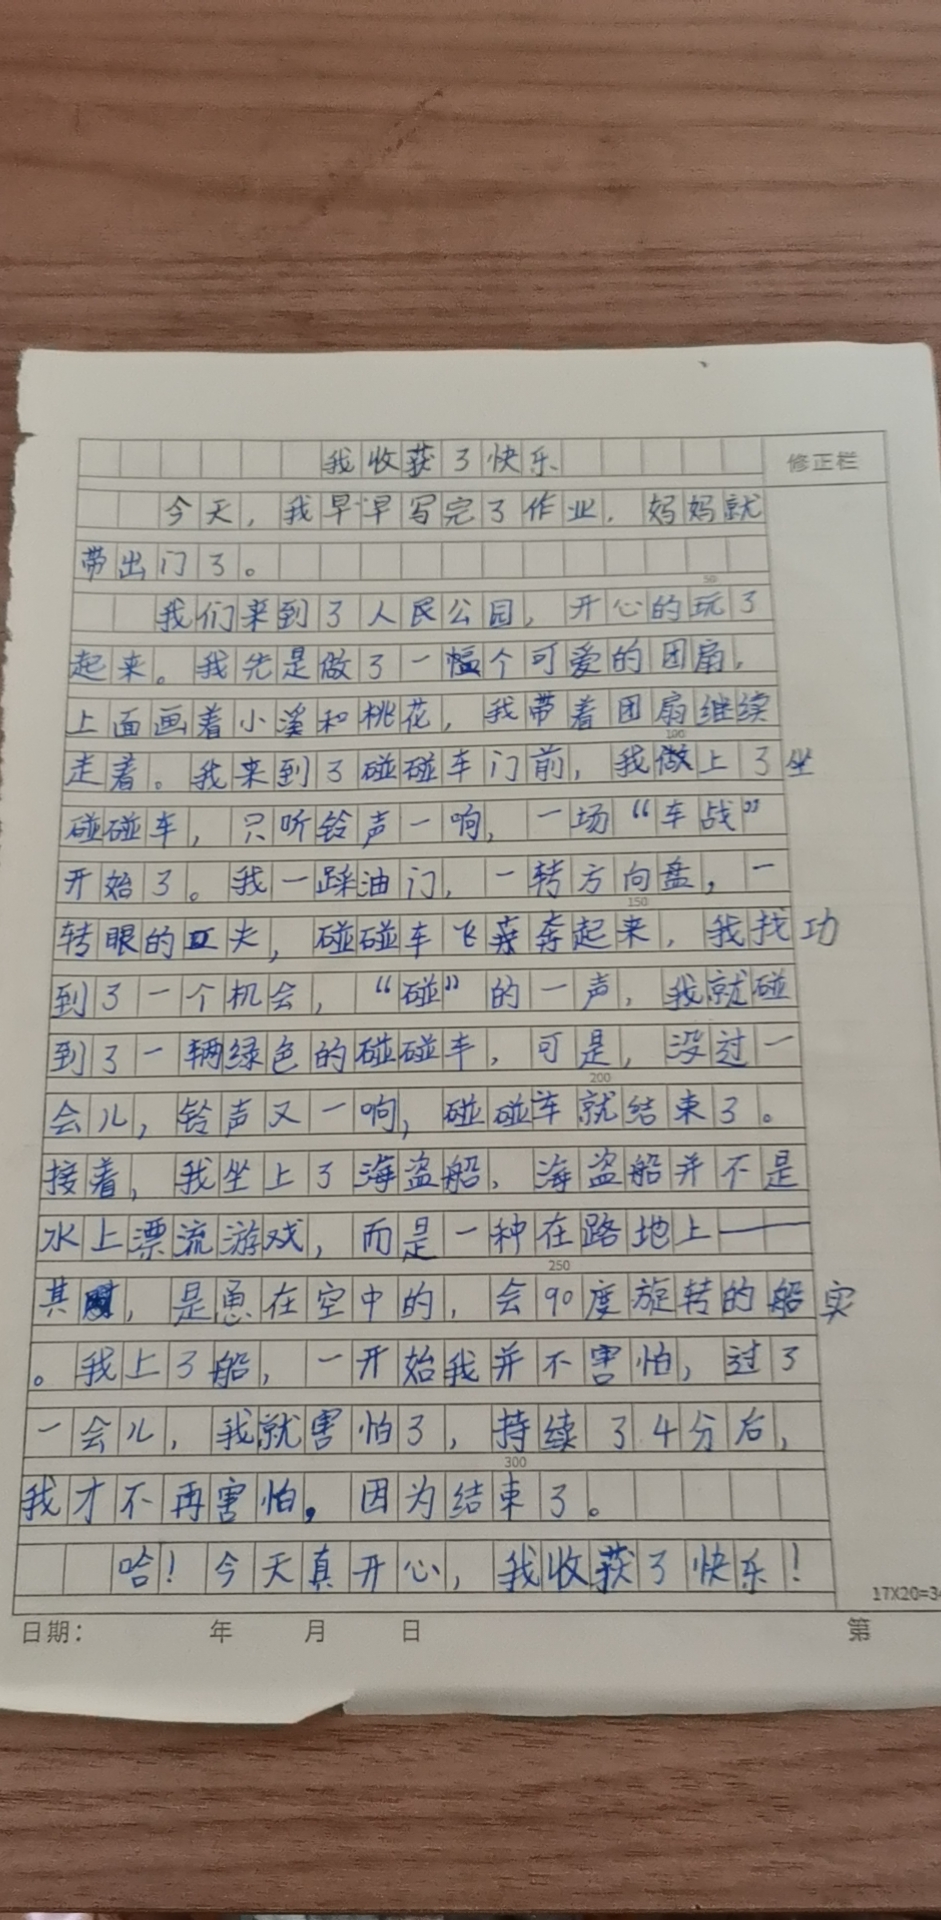 我收获了快乐
修正栏
今天,我早早写完了作业,妈妈就
带出门了。
50
我们来到了人民公园,开心的玩了
起来。我先是做了一个可爱的团扇,
上面画着小溪和桃花,我带着团扇继续
100
走着。我来到了碰碰车门前,我做上了 坐
碰碰车,只听铃声一响,一场“车战”
开始了。我一踩油门,一转方向盘,一
150
转眼的工夫,碰碰车飞奔起来,我找 功
到了一个机会,“碰”的一声,我就碰
到了一辆绿色的碰碰车,可是,没过一
200
会儿,铃声又一响,碰碰车就结束了。
接着,我坐上了海盗船,海盗船并不是
水上漂流游戏,而是一种在路地上——
250
其,是在空中的,会90度旋转的船 实
。我上了船,一开始我并不害怕,过了
一会儿,我就害怕了,持续了4分后,
300
我才不再害怕,因为结束了。
哈!今天真开心,我收获了快乐!
17X20=3
日期: 年 月 日 第